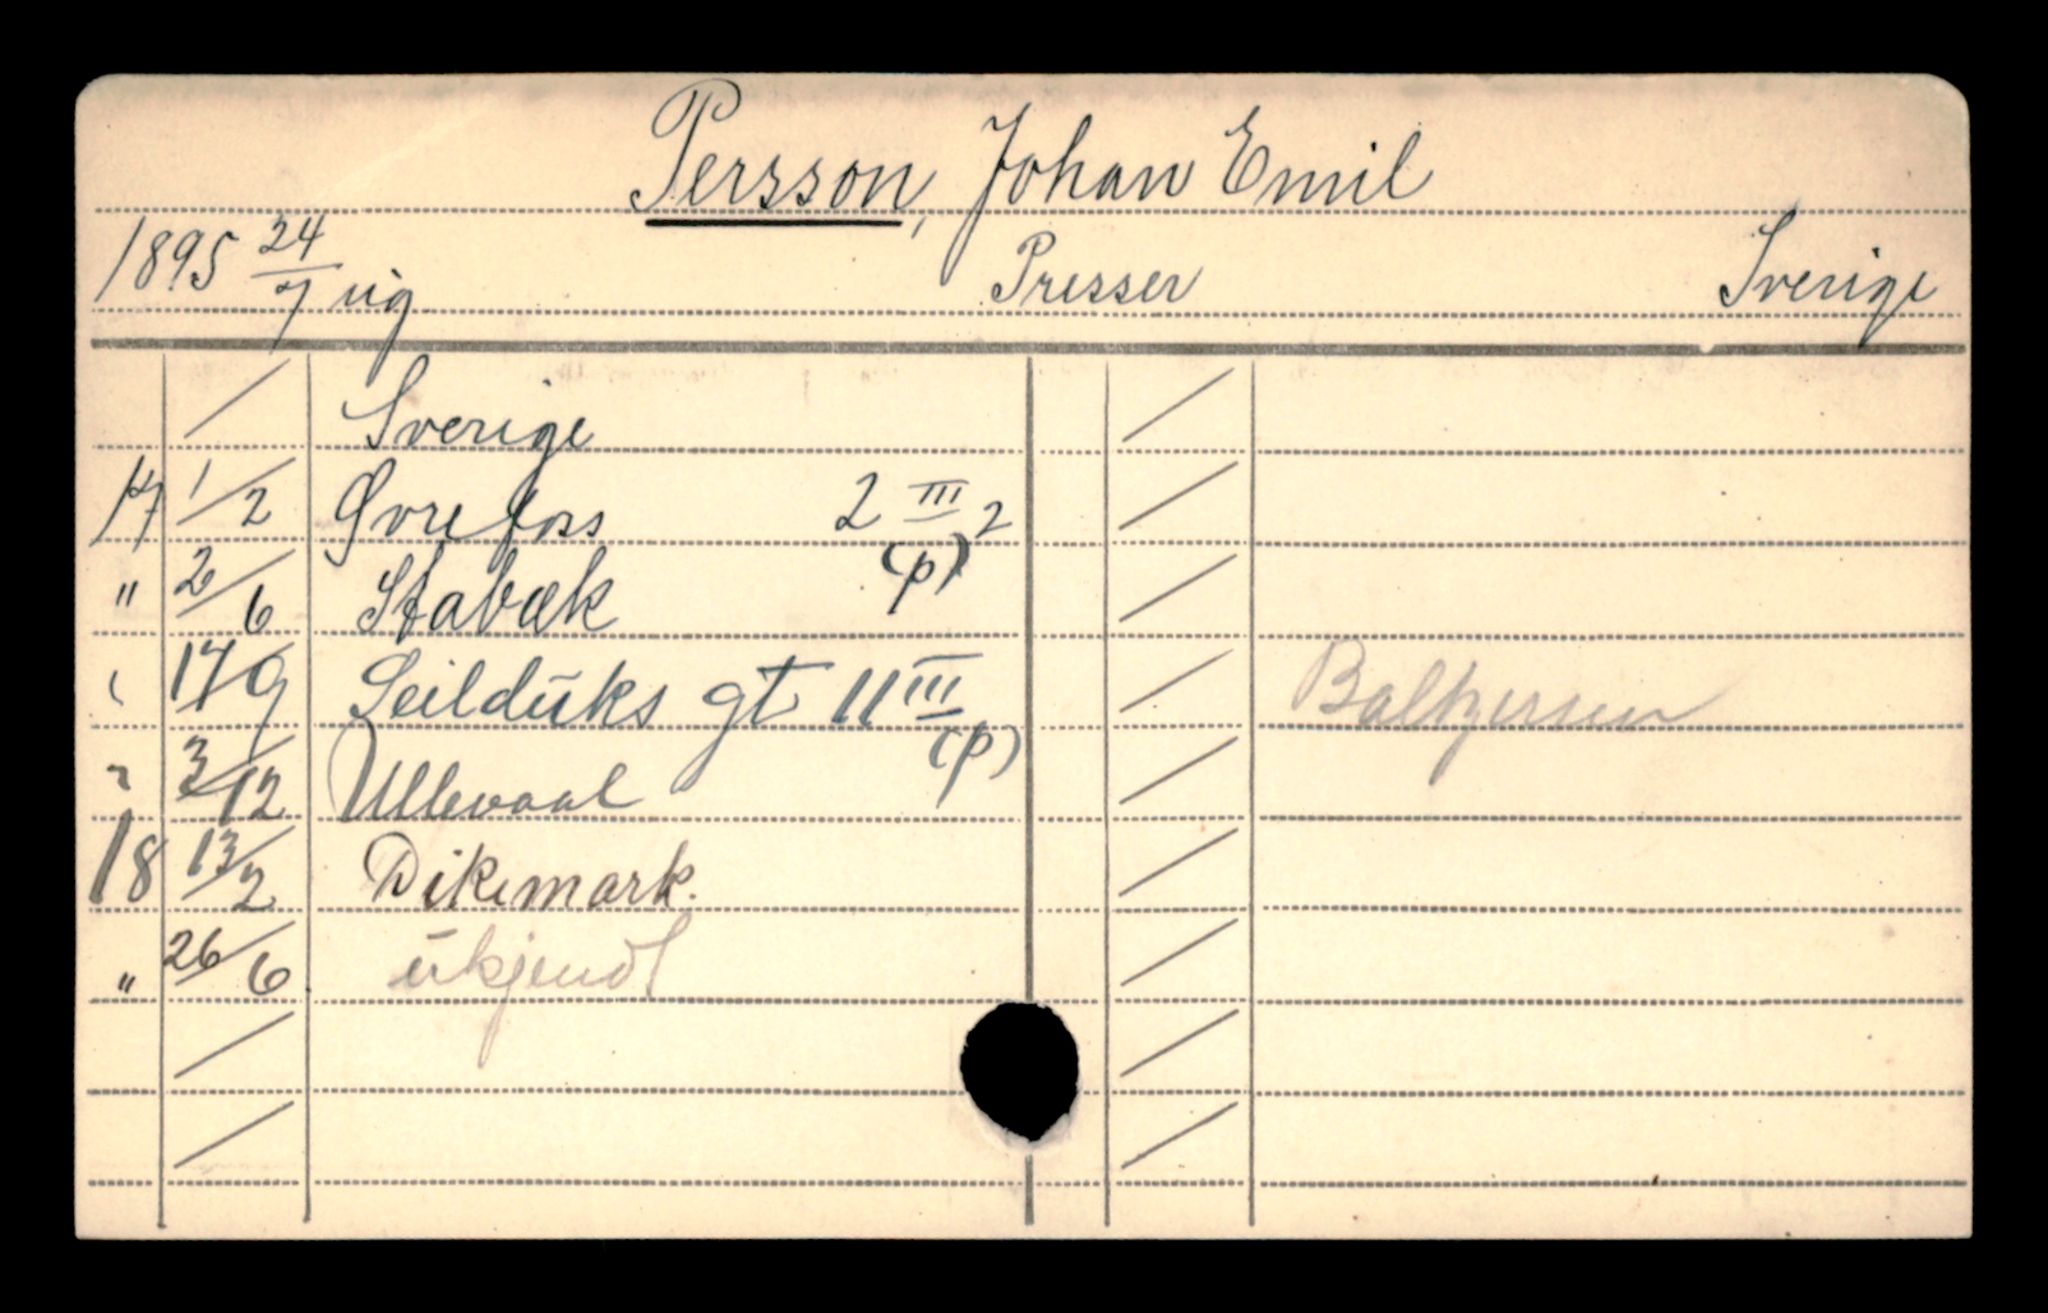 Persson, Johan Emil
1895 24/7 ug Presser Sverige
Sverige
17 1/2 Øvrefoss 2 III 2
" 2/6 Stabæk (p)
" 17/9 Seilduks gt 11 III (p) Baltzersen
" 3/12 Ullevaal
18 13/2 Dikemark.
" 26/6 ukjendt